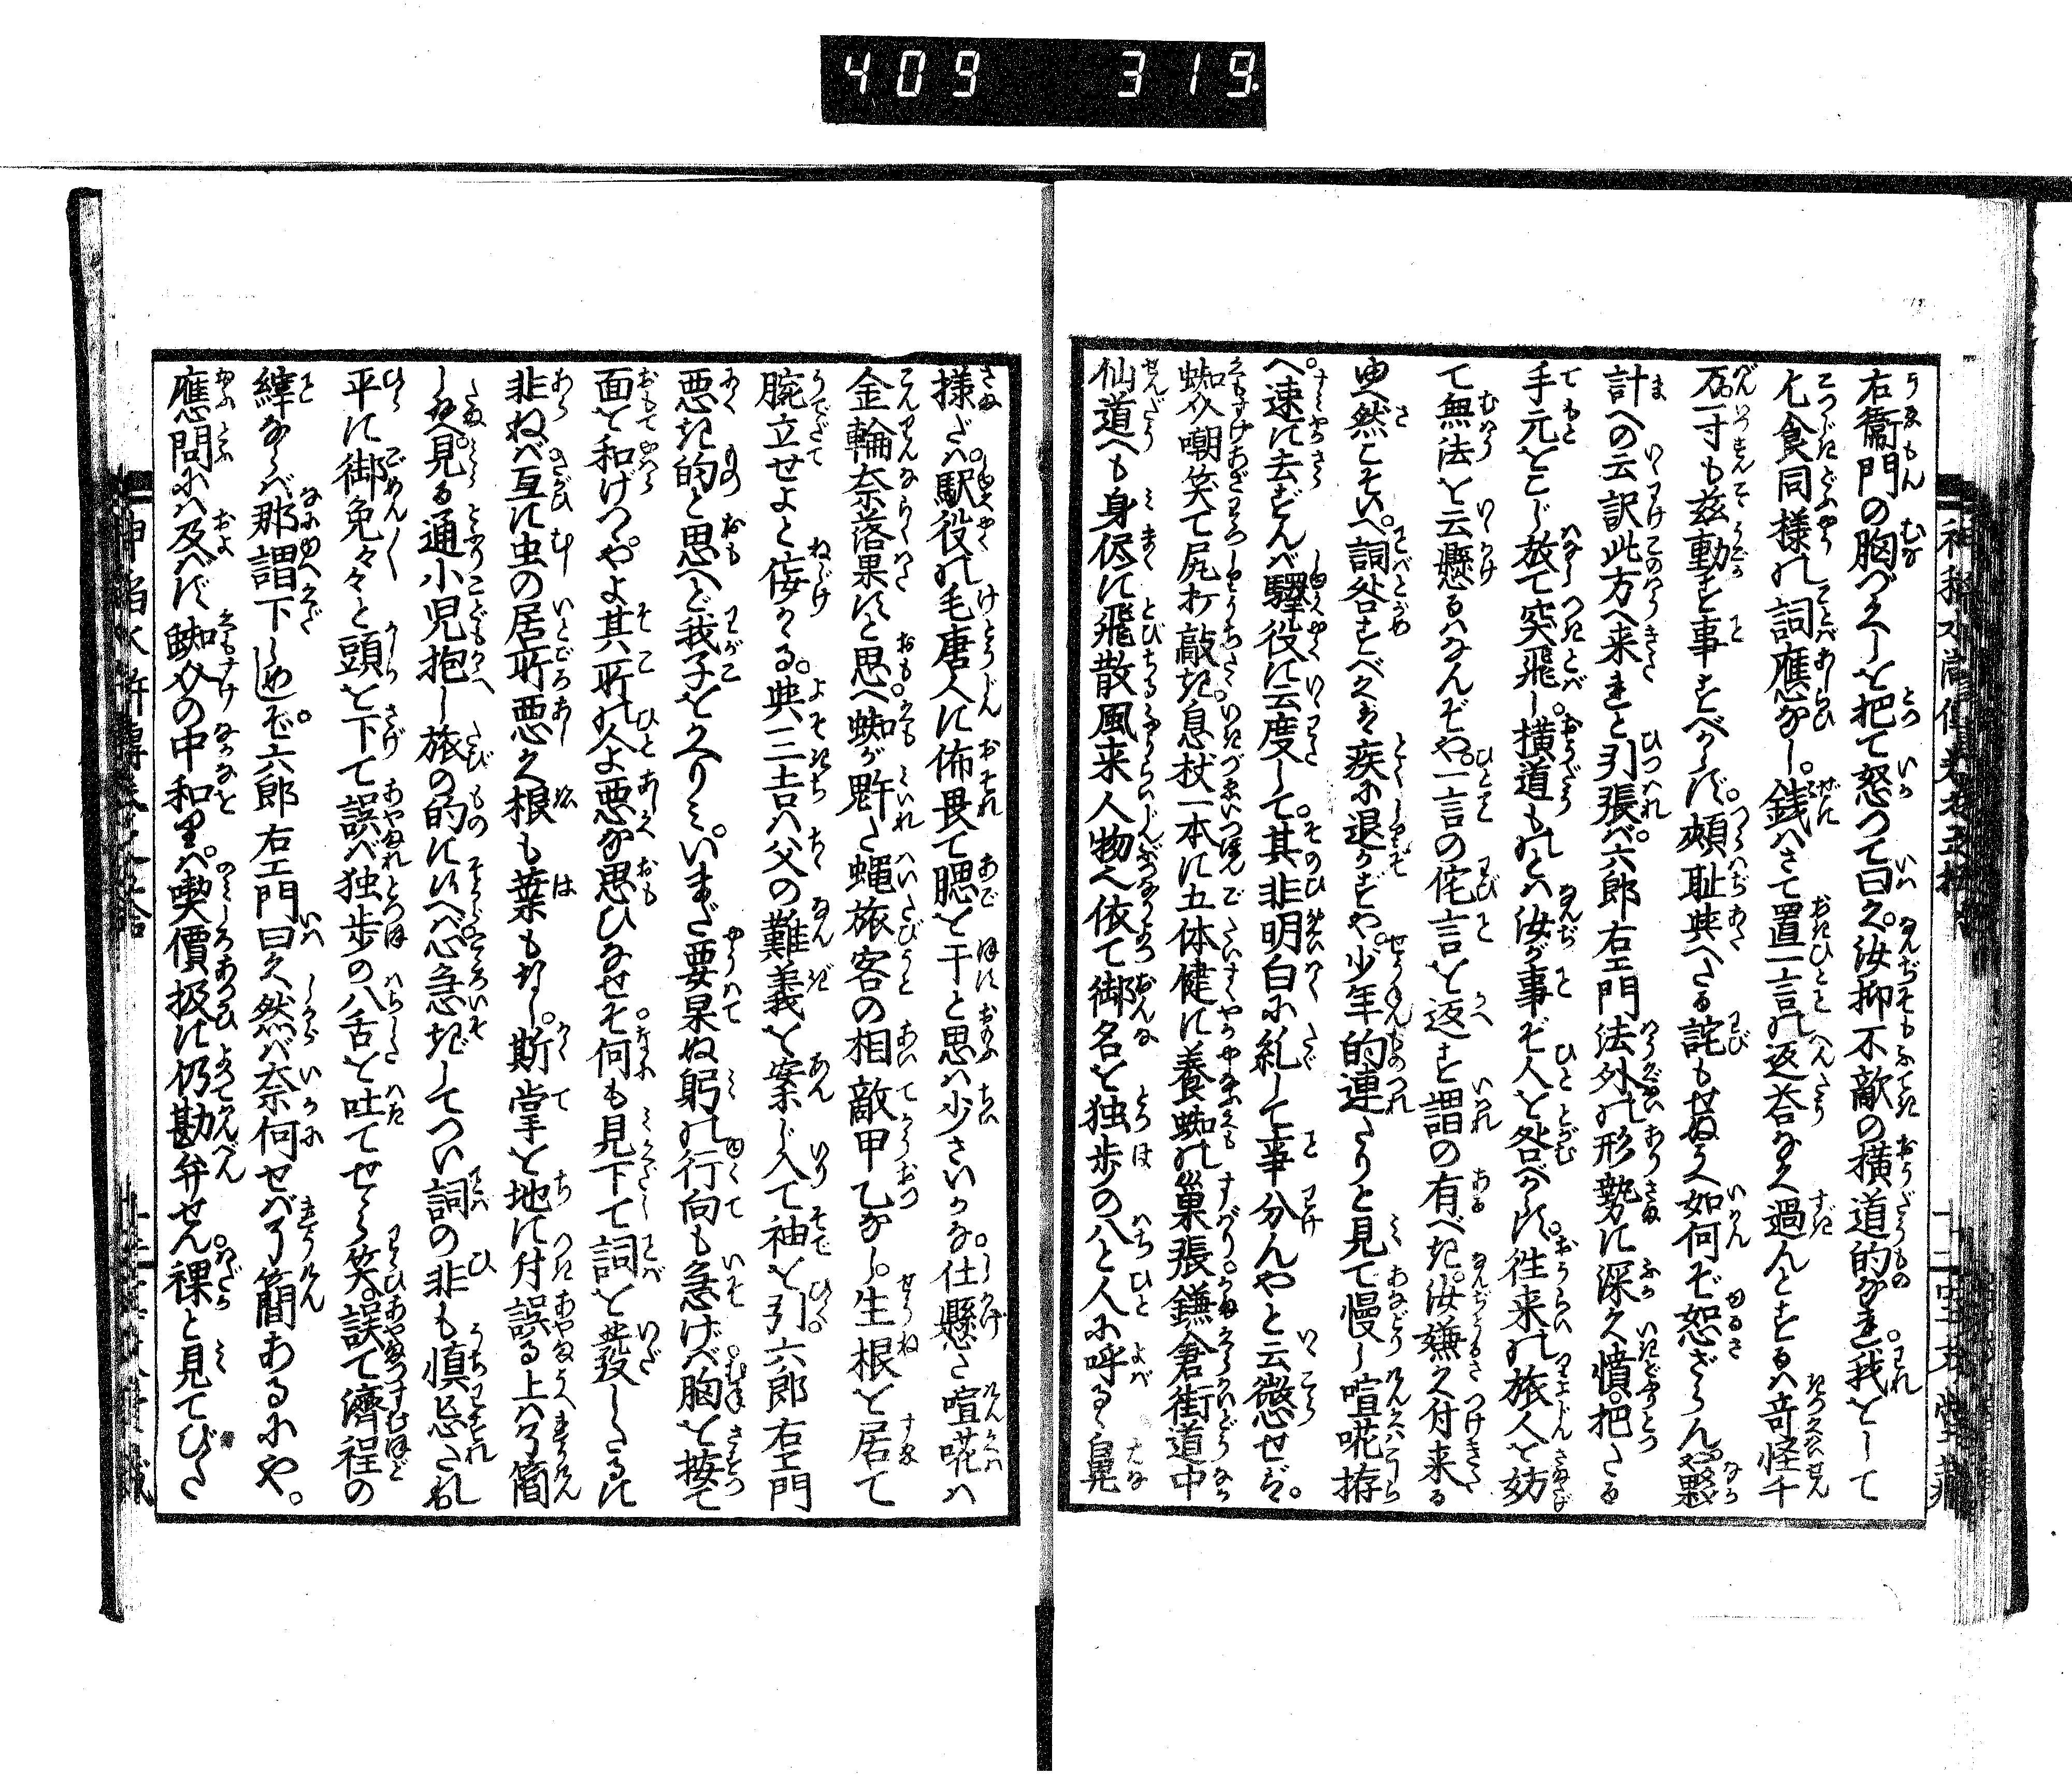 409 319
右衞門の胸づくしを把て怒つて曰く。汝抑不敵の横道的なれ。我をして
乞食同様の詞應なし。銭はさて置一言の返答なく過んとするは奇怪千
万。一寸も茲動す事すべからず。頬恥与へたる詫もせぬうへ如何ぞ恕ざらんや夥
計への云訳此方へ来れと引張ば。六郎右エ門法外の形勢に深く憤。把たる
手元をこじ放て突飛し。横道ものとは汝が事ぞ人を咎べからず。往来の旅人を妨
て無法を云懸るはなんぞや。一言の侘言を返す謂の有べき。汝嫌く付来る
ゆへ然こそいへ。詞咎すべくは疾に退かずや。少年的連たりと見て慢し喧嘩拵
へ。速に去ずんば驛役に云度して。其非明白に糺して事分んやと云懲せば。
蜘介嘲笑て尻打敲き。息杖一本に五体健に養蜘の巣張。鎌倉街道中
仙道へも身侭に飛散風来人物人依て御名を独歩の八と人に呼るゝ白晃
様だは。駅役の毛唐人に怖畏て腮を干と思は少さいかな。仕懸た喧嘩は
金輪奈落果にと思へ。蜘が野た蠅旅客の相敵甲乙なし。生根を居て
腕立せよと侮かゝる。與三吉は父の難義を案じ入て袖を引。六郎右エ門
悪き的と思へど我子をかへりみ。いまだ要果ぬ躬の行向も急げば。胸を按て
面を和げつゝ。やよ其所の人よ悪な思ひなせそ。何も見下て詞を発したるに
非ねば互に虫の居所悪く根も葉もなし。斯掌を地に付誤る上は了簡
したまへ。見る通小児抱し旅の的に候へば。心急ぎしてつい詞の非も慎忘たれ
平に御免々々と頭を下て誤ば独歩の八舌を吐てせゝら笑。誤て濟程の
縡ならば那謂下しめぞ。六郎右エ門曰く然ば奈何せば了簡あるにや。
應問には及ばず蜘介の中和里ぱ。喫價扱に仍勘弁せん。裸と見てびた